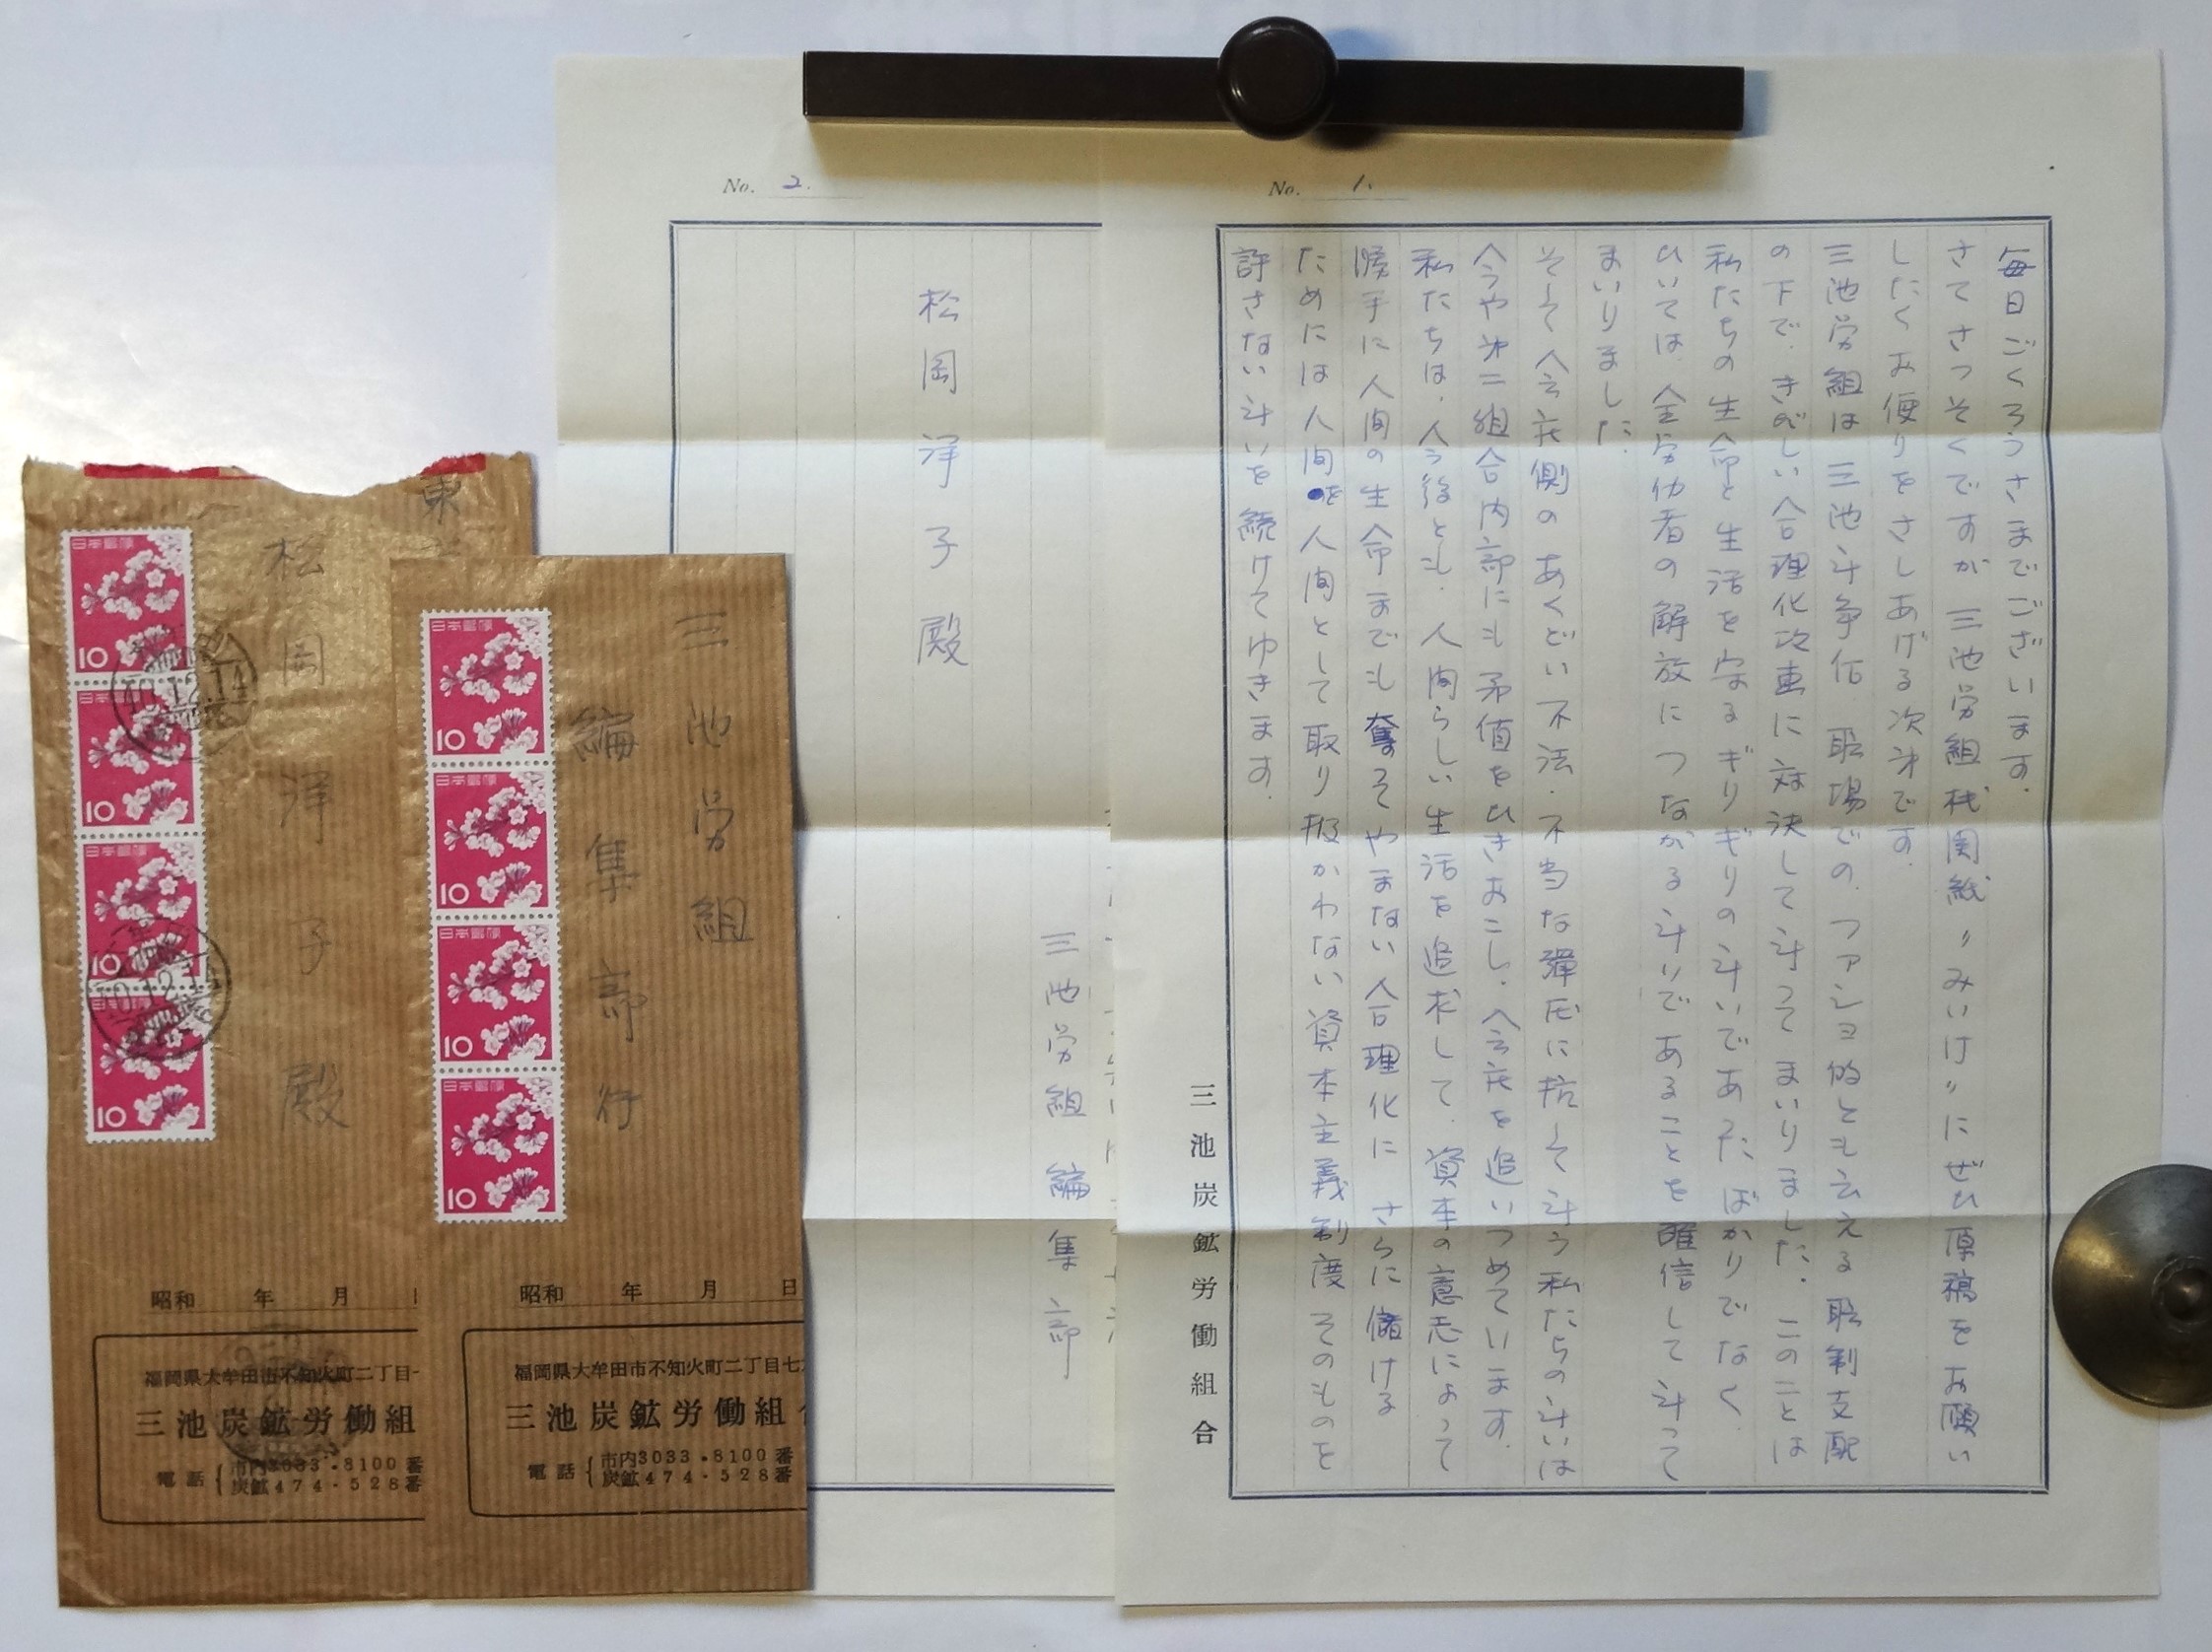 No. 1.
毎日ごくろうさまでございます.
さてさっそくですが 三池労組機関紙〃みいけ〃にぜひ原稿をお願い
したくお便りをさしあげる次第です.
三池労組は三池斗争后、職場での、ファショ的とも云える職制支配
の下で、きびしい合理化攻撃に対決して斗って まいりました. このことは
私たちの生命と生活を守るギリギリの斗いであったばかりでなく、
ひいては、全労仂者の解放につながる斗いであることを確信して斗って
まいりました.
そして会社側のあくどい不法、不当な弾圧に抗して斗う私たちの斗いは
今や第二組合内部にも矛盾をひきおこし、会社を追いつめています.
私たちは、今後とも、人間らしい生活を追求して、資本の意志によって
勝手に人間の生命までも奪ってやまない合理化に さらに儲ける
ためには人間を人間として取り扱かわない資本主義制度そのものを
許さない斗いを続けてゆきます.
三池炭鉱労働組合
No. 2.
三池労組 編集部
松岡洋子殿
三池労組
編集部行
日本郵便
10
日本郵便
10
日本郵便
10
日本郵便
10
昭和 年 月 日
福岡県大牟田市不知火町二丁目七
三池炭鉱労働組
電話 市内3033・8100番
炭鉱474・528番
東
松岡洋子殿
日本郵便
10
日本郵便
10
日本郵便
10
日本郵便
10
40.12.14
昭和 年 月
福岡県大牟田市不知火町二丁目
三池炭鉱労働組
電話 市内3033・8100番
炭鉱474・528番